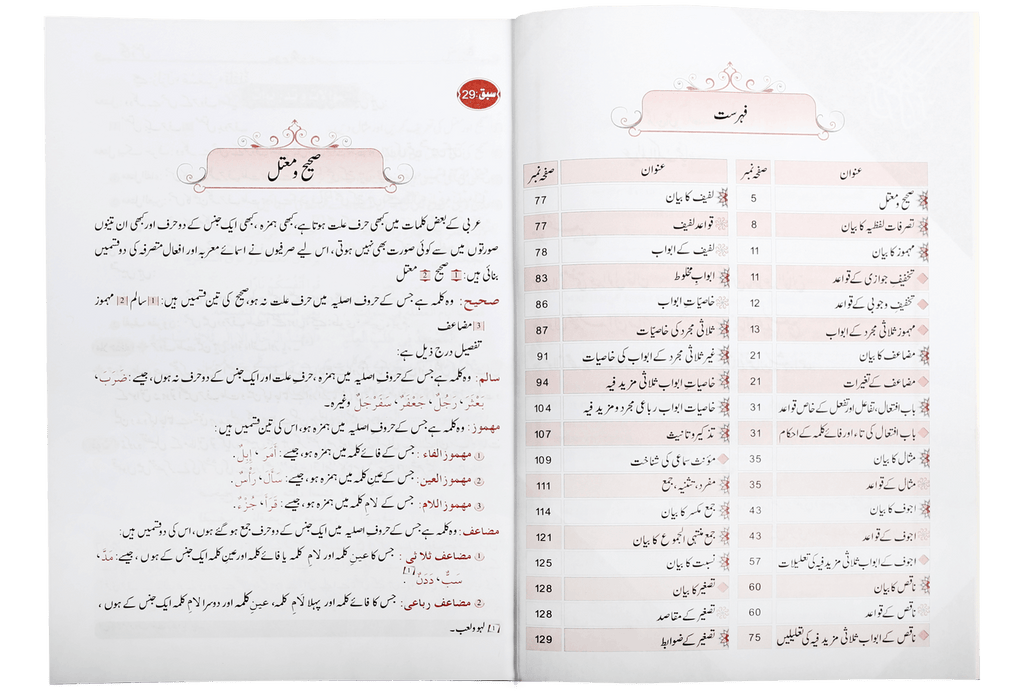 فہرست
عنوان صفحہ نمبر
صحیح و معتل 5
تصرفات لفظیہ کا بیان 8
مہموز کا بیان 11
تخفیف جوازی کے قواعد 11
تخفیف وجوبی کے قواعد 12
مہموز ثلاثی مجرد کے ابواب 13
مضاعف کا بیان 21
مضاعف کے تغیرات 21
باب افتعال، تفاعل اور تفعل کے خاص قواعد 31
باب افتعال کی تاء اور فائے کلمہ کے احکام 31
مثال کا بیان 35
مثال کے قواعد 35
اجوف کا بیان 43
اجوف کے قواعد 43
اجوف کے ابواب ثلاثی مزید فیہ کی تعلیلات 57
ناقص کا بیان 60
ناقص کے قواعد 60
ناقص کے ابواب ثلاثی مزید فیہ کی تعلیلیں 75
عنوان صفحہ نمبر
لفیف کا بیان 77
قواعد لفیف 77
لفیف کے ابواب 78
ابواب مخلوط 83
خاصیّات ابواب 86
ثلاثی مجرد کی خاصیّات 87
غیر ثلاثی مجرد کے ابواب کی خاصیات 91
خاصیات ابواب ثلاثی مزید فیہ 94
خاصیات ابواب رباعی مجرد و مزید فیہ 104
تذکیر و تانیث 107
مؤنث سماعی کی شناخت 109
مفرد، تثنیہ، جمع 111
جمع مکسر کا بیان 114
جمع منتہی الجموع کا بیان 121
نسبت کا بیان 125
تصغیر کا بیان 128
تصغیر کے مقاصد 128
تصغیر کے ضوابط 129
سبق:29
صحیح و معتل
عربی کے بعض کلمات میں کبھی حرف علت ہوتا ہے، کبھی ہمزہ، کبھی ایک جنس کے دو حرف اور کبھی ان تینوں
صورتوں میں سے کوئی صورت بھی نہیں ہوتی، اس لیے صرفیوں نے اسمائے معربہ اور افعال متصرفہ کی دو قسمیں
بنائی ہیں: 1 صحیح 2 معتل
صحیح: وہ کلمہ ہے جس کے حروف اصلیہ میں حرف علت نہ ہو، صحیح کی تین قسمیں ہیں: |1| سالم |2| مہموز
|3| مضاعف
تفصیل درج ذیل ہے:
سالم: وہ کلمہ ہے جس کے حروف اصلیہ میں ہمزہ، حرف علت اور ایک جنس کے دو حرف نہ ہوں، جیسے: ضَرَبَ،
بَعْثَرَ، رَجُلٌ، جَعْفَرٌ، سَفَرْجَلٌ وغیرہ۔
مہموز: وہ کلمہ ہے جس کے حروف اصلیہ میں ہمزہ ہو، اس کی تین قسمیں ہیں:
① مہموز الفاء: جس کے فائے کلمہ میں ہمزہ ہو، جیسے: أَمَرَ، إِبِلٌ.
② مہموز العین: جس کے عین کلمہ میں ہمزہ ہو، جیسے: سَأَلَ، رَأْسٌ.
③ مہموز اللام: جس کے لامِ کلمہ میں ہمزہ ہو، جیسے: قَرَأَ، جُزْءٌ.
مضاعف: وہ کلمہ ہے جس کے حروف اصلیہ میں ایک جنس کے دو حرف جمع ہو گئے ہوں، اس کی دو قسمیں ہیں:
① مضاعف ثلاثی: جس کا عینِ کلمہ اور لامِ کلمہ یا فائے کلمہ اور عین کلمہ ایک جنس کے ہوں، جیسے: مَدَّ،
سَبٌّ، دَدَنٌ
② مضاعف رباعی: جس کا فائے کلمہ اور پہلا لامِ کلمہ، عینِ کلمہ اور دوسرا لامِ کلمہ ایک جنس کے ہوں،
[1] لہو ولعب۔